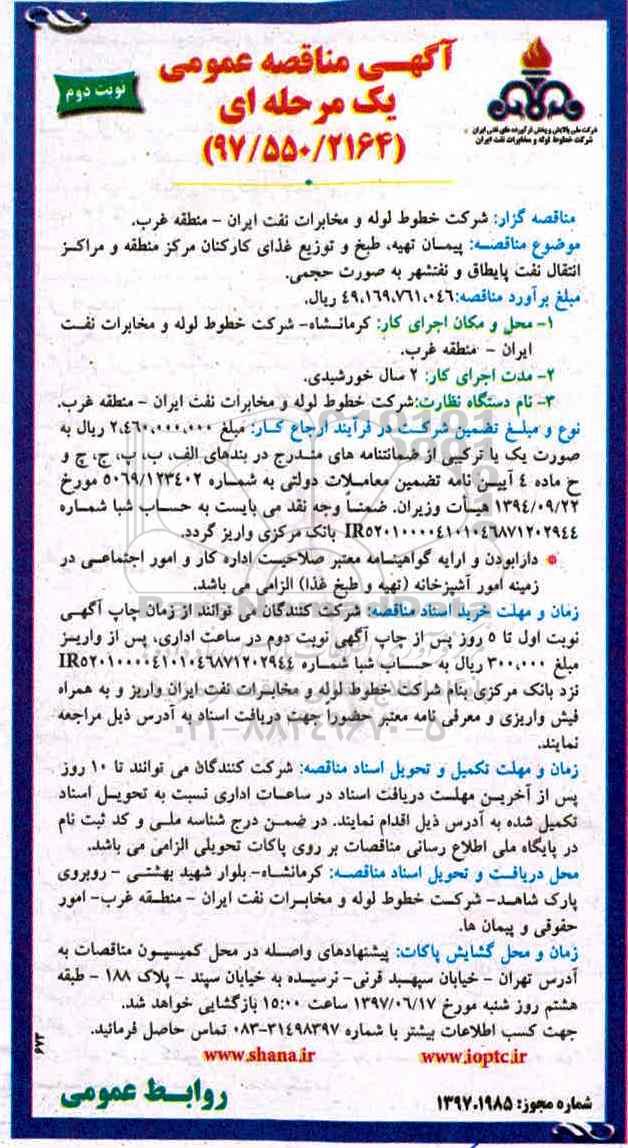 آگهی مناقصه عمومی
یک مرحله ای
(۹۷/۵۵۰/۲۱۶۴)
نوبت دوم
شرکت ملی پالایش و پخش فرآورده های نفتی ایران
شرکت خطوط لوله و مخابرات نفت ایران
مناقصه گزار: شرکت خطوط لوله و مخابرات نفت ایران - منطقه غرب.
موضوع مناقصه: پیمان تهیه، طبخ و توزیع غذای کارکنان مرکز منطقه و مراکز
انتقال نفت پایطاق و نفتشهر به صورت حجمی.
مبلغ برآورد مناقصه: ۴۹،۱۶۹،۷۶۱،۰۴۶ ریال.
۱- محل و مکان اجرای کار: کرمانشاه- شرکت خطوط لوله و مخابرات نفت
ایران - منطقه غرب.
۲- مدت اجرای کار: ۲ سال خورشیدی.
۳- نام دستگاه نظارت: شرکت خطوط لوله و مخابرات نفت ایران - منطقه غرب.
نوع و مبلغ تضمین شرکت در فرآیند ارجاع کار: مبلغ ۲،۴۶۰،۰۰۰،۰۰۰ ریال به
صورت یک یا ترکیبی از ضمانتنامه های مندرج در بندهای الف، ب، پ، ج، چ و
ح ماده ۴ آیین نامه تضمین معاملات دولتی به شماره ۵۰۶۹/۱۲۳۴۰۲ مورخ
۱۳۹۴/۰۹/۲۲ هیأت وزیران. ضمناً وجه نقد می بایست به حساب شبا شماره
IR۵۲۰۱۰۰۰۰۴۱۰۱۰۴۶۸۷۱۲۰۲۹۴۴ بانک مرکزی واریز گردد.
* دارابودن و ارایه گواهینامه معتبر صلاحیت اداره کار و امور اجتماعی در
زمینه امور آشپزخانه (تهیه و طبخ غذا) الزامی می باشد.
زمان و مهلت خرید اسناد مناقصه: شرکت کنندگان می توانند از زمان چاپ آگهی
نوبت اول تا ۵ روز پس از چاپ آگهی نوبت دوم در ساعت اداری، پس از واریز
مبلغ ۳۰۰،۰۰۰ ریال به حساب شبا شماره IR۵۲۰۱۰۰۰۰۴۱۰۱۰۴۶۸۷۱۲۰۲۹۴۴
نزد بانک مرکزی بنام شرکت خطوط لوله و مخابرات نفت ایران واریز و به همراه
فیش واریزی و معرفی نامه معتبر حضوراً جهت دریافت اسناد به آدرس ذیل مراجعه
نمایند.
زمان و مهلت تکمیل و تحویل اسناد مناقصه: شرکت کنندگان می توانند تا ۱۰ روز
پس از آخرین مهلت دریافت اسناد در ساعات اداری نسبت به تحویل اسناد
تکمیل شده به آدرس ذیل اقدام نمایند. در ضمن درج شناسه ملی و کد ثبت نام
در پایگاه ملی اطلاع رسانی مناقصات بر روی پاکات تحویلی الزامی می باشد.
محل دریافت و تحویل اسناد مناقصه: کرمانشاه- بلوار شهید بهشتی - روبروی
پارک شاهد- شرکت خطوط لوله و مخابرات نفت ایران - منطقه غرب- امور
حقوقی و پیمان ها.
زمان و محل گشایش پاکات: پیشنهادهای واصله در محل کمیسیون مناقصات به
آدرس تهران - خیابان سپهبد قرنی- نرسیده به خیابان سپند - پلاک ۱۸۸ - طبقه
هشتم روز شنبه مورخ ۱۳۹۷/۰۶/۱۷ ساعت ۱۵:۰۰ بازگشایی خواهد شد.
جهت کسب اطلاعات بیشتر با شماره ۳۱۴۹۸۳۹۷-۰۸۳ تماس حاصل فرمائید.
www.ioptc.ir www.shana.ir
شماره مجوز: ۱۳۹۷،۱۹۸۵
روابط عمومی
۶۷۳
۰۲۱-۸۸۳۴۹۶۷۰-۵